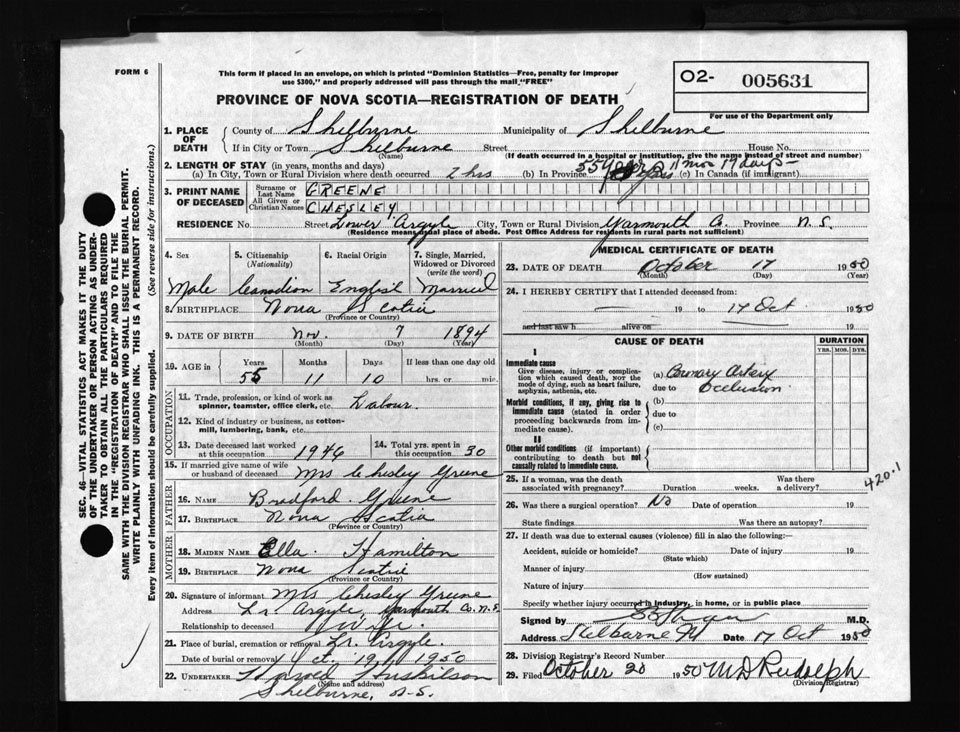 FORM 6
This form if placed in an envelope, on which is printed "Dominion Statistics—Free, penalty for improper
use $300," and properly addressed will pass through the mail "FREE"
O2- 005631
For use of the Department only
PROVINCE OF NOVA SCOTIA—REGISTRATION OF DEATH
1. PLACE OF DEATH County of Shelburne Municipality of Shelburne
If in City or Town Shelburne Street House No.
(Name) (If death occurred in a hospital or institution, give the name instead of street and number)
2. LENGTH OF STAY (in years, months and days)
(a) In City, Town or Rural Division where death occurred 2 hrs (b) In Province 55 11 mos 17 days (c) In Canada (if immigrant)
3. PRINT NAME OF DECEASED Surname or Last Name GREENE
All Given or Christian Names CHESLEY
RESIDENCE No. Street Lower Argyle City, Town or Rural Division Yarmouth Co. Province N.S.
(Residence means usual place of abode. Post Office Address for residents in rural parts not sufficient)
4. Sex 5. Citizenship (Nationality) 6. Racial Origin 7. Single, Married, Widowed or Divorced (write the word)
Male Canadian English Married
8. BIRTHPLACE Nova Scotia
(Province or Country)
9. DATE OF BIRTH Nov. 7 1894
(Month) (Day) (Year)
10. AGE in Years Months Days If less than one day old
55 11 10 hrs. or min.
OCCUPATION
11. Trade, profession, or kind of work as spinner, teamster, office clerk, etc. Labour.
12. Kind of industry or business, as cotton-mill, lumbering, bank, etc.
13. Date deceased last worked at this occupation 1946 14. Total yrs. spent in this occupation 30
15. If married give name of wife or husband of deceased Mrs Chesley Greene
FATHER
16. NAME Bradford Greene
17. BIRTHPLACE Nova Scotia
(Province or Country)
MOTHER
18. MAIDEN NAME Ella Hamilton
19. BIRTHPLACE Nova Scotia
(Province or Country)
20. Signature of informant Mrs Chesley Greene
Address Lr. Argyle, Yarmouth Co. N.S.
Relationship to deceased Wife
21. Place of burial, cremation or removal Lr. Argyle.
Date of burial or removal Oct. 19 1950
22. UNDERTAKER
(Name and Address)
Shelburne, N.S.
MEDICAL CERTIFICATE OF DEATH
23. DATE OF DEATH October 17 1950
(Month) (Day) (Year)
24. I HEREBY CERTIFY that I attended deceased from:
19 to 17 Oct 1950
and last saw h alive on 19
CAUSE OF DEATH DURATION
YRS. MOS. DYS.
I
Immediate cause
Give disease, injury or complication which caused death, NOT the mode of dying, such as heart failure, asphyxia, asthenia, etc.
(a) Coronary Artery
due to Occlusion
Morbid conditions, if any, giving rise to immediate cause (stated in order proceeding backwards from immediate cause).
(b)
due to
(c)
II
Other morbid conditions (if important) contributing to death but not causally related to immediate cause.
420.1
25. If a woman, was the death associated with pregnancy? Duration weeks. Was there a delivery?
26. Was there a surgical operation? No Date of operation 19
State findings Was there an autopsy?
27. If death was due to external causes (violence) fill in also the following:—
Accident, suicide or homicide? Date of injury 19
(State which)
Manner of injury
(How sustained)
Nature of injury
Specify whether injury occurred in industry, in home, or in public place
Signed by M.D.
Address Shelburne NS Date 17 Oct 1950
28. Division Registrar's Record Number
29. Filed October 20 1950 M D Rudolph
(Division Registrar)
SEC. 46—VITAL STATISTICS ACT MAKES IT THE DUTY
OF THE UNDERTAKER OR PERSON ACTING AS UNDER-
TAKER TO OBTAIN ALL THE PARTICULARS REQUIRED
IN THE "REGISTRATION OF DEATH" AND TO FILE THE
SAME WITH THE DIVISION REGISTRAR WHO SHALL ISSUE THE BURIAL PERMIT.
WRITE PLAINLY WITH UNFADING INK. THIS IS A PERMANENT RECORD.
Every item of information should be carefully supplied. (See reverse side for instructions.)